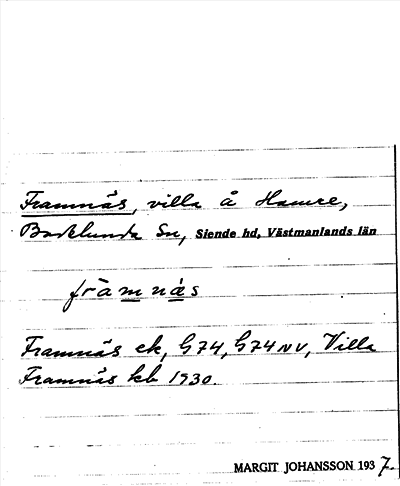 Framnäs, villa å Hamre,
Badelunda Sn, Siende hd, Västmanlands län
framnäs
Framnäs ek, G74, G74NV, Villa
Framnäs kb 1930.
MARGIT JOHANSSON 1937.